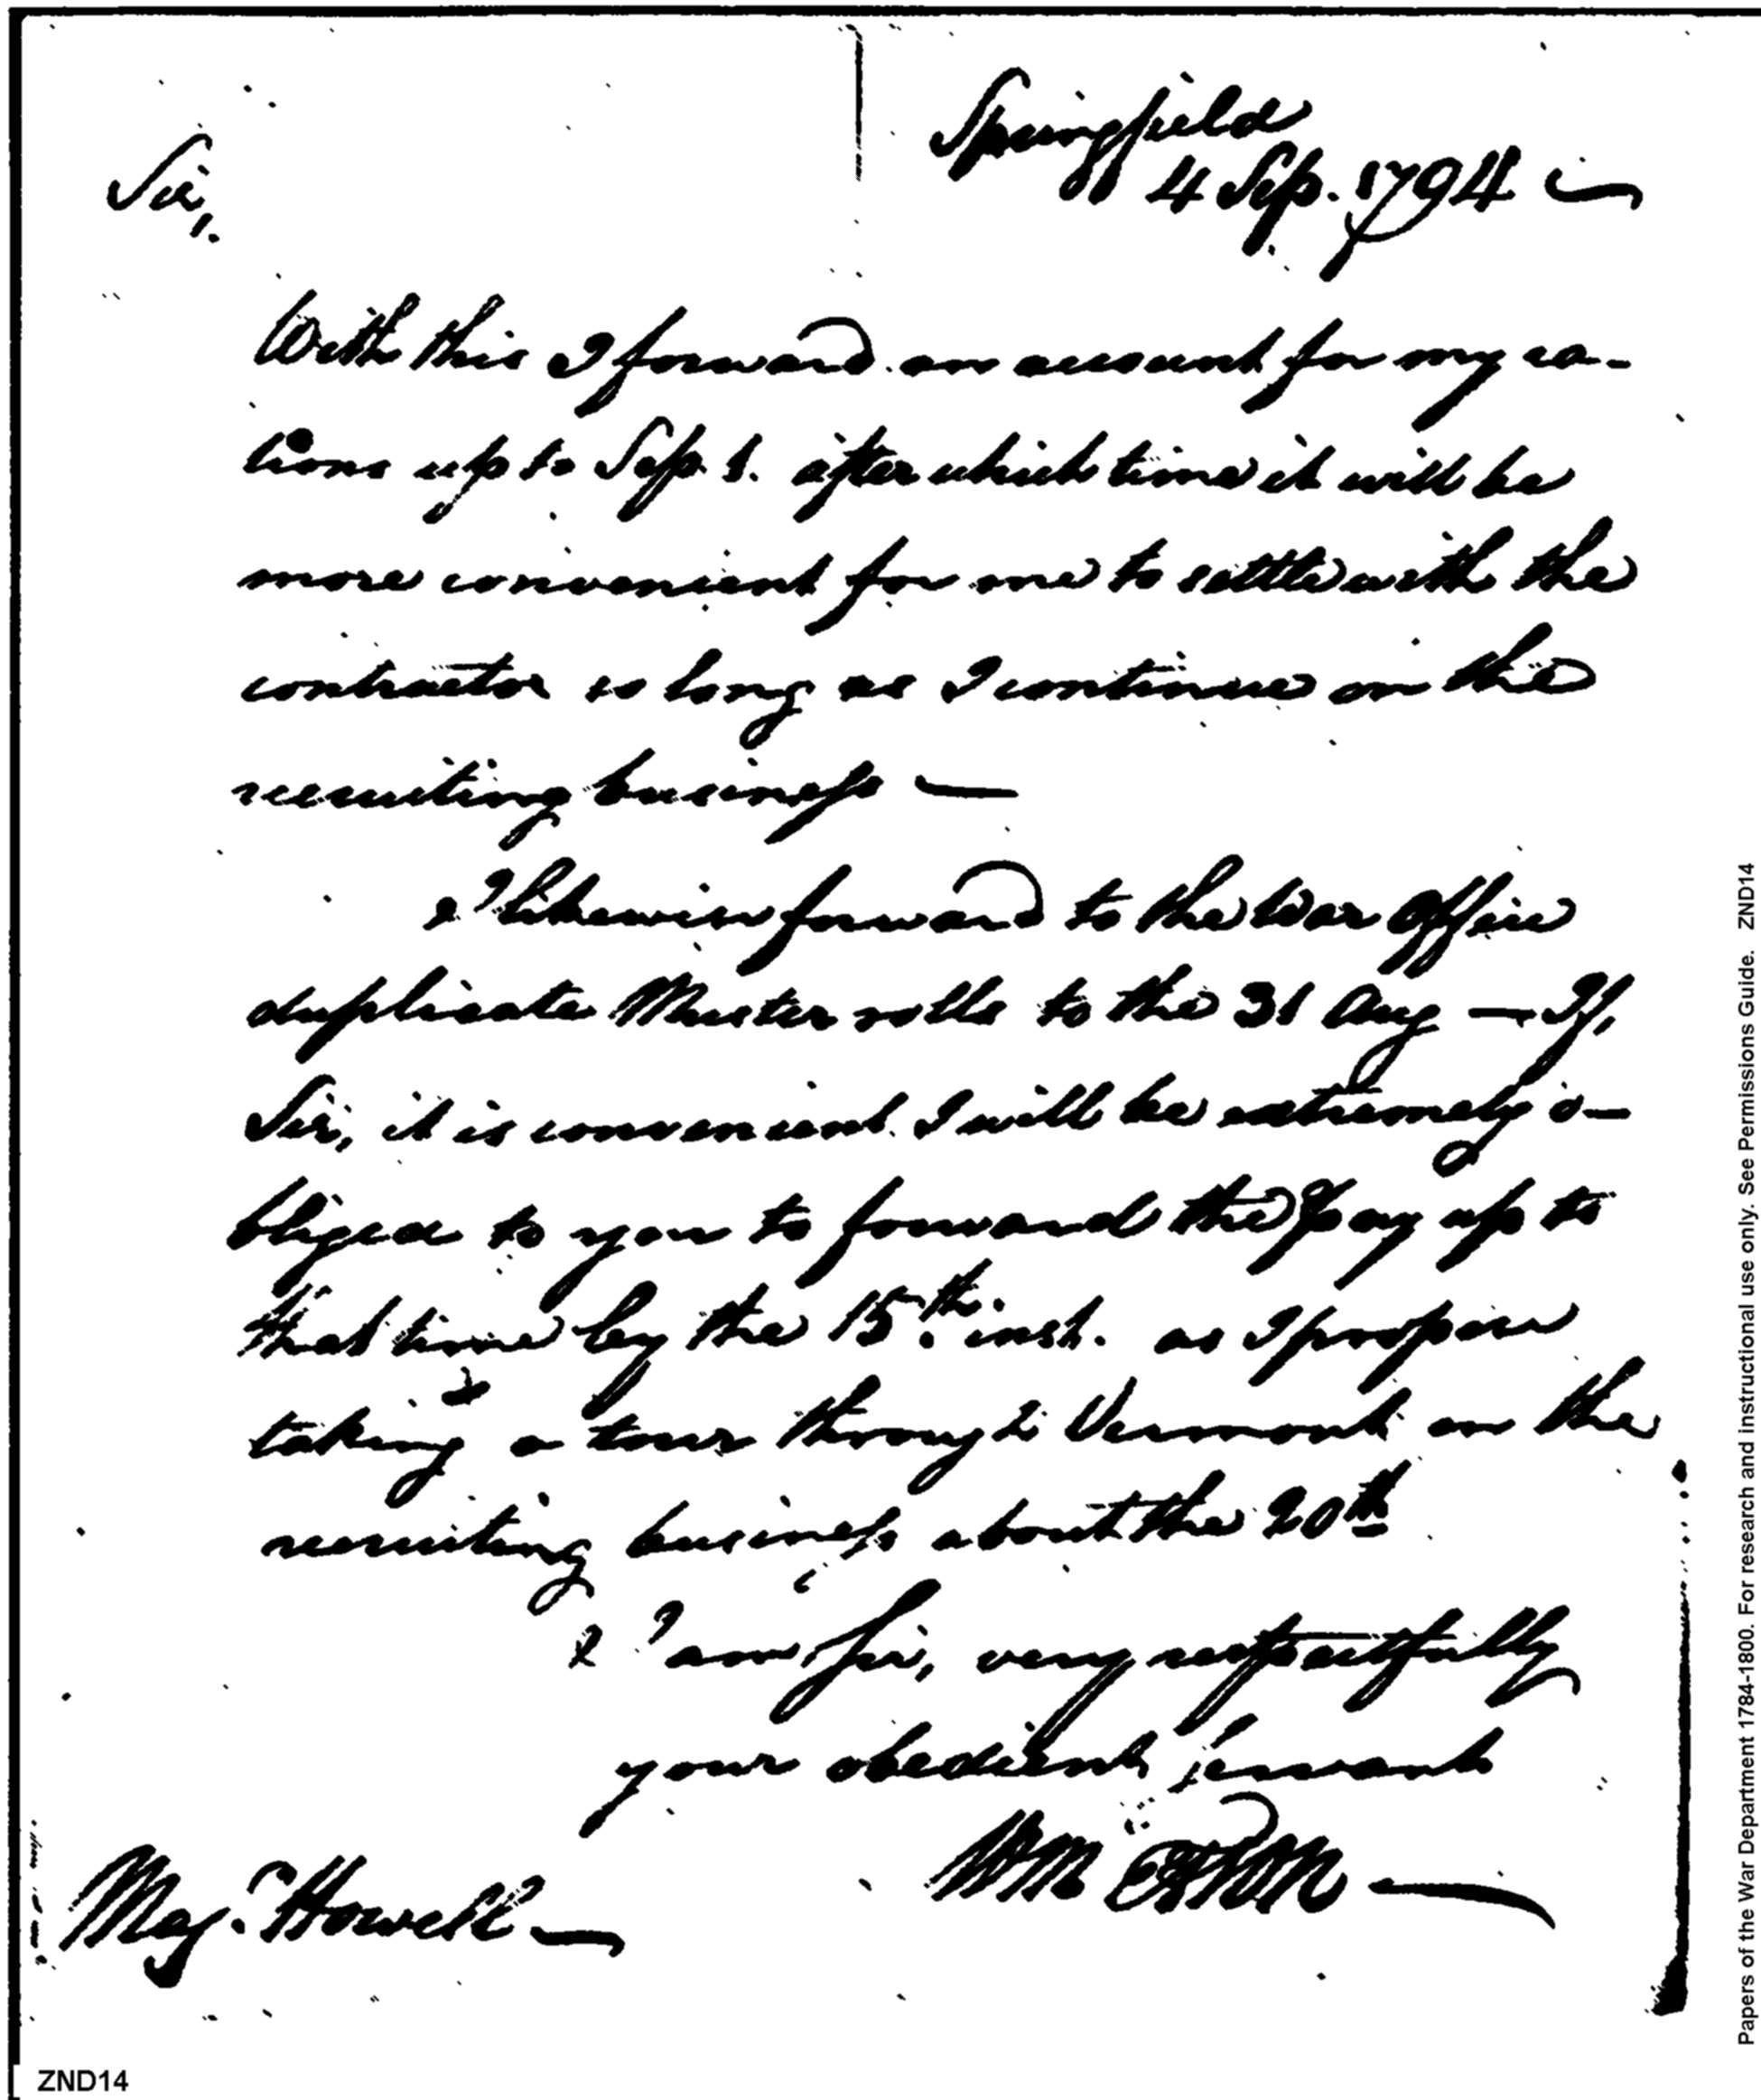 Springfield
4 Sep. 1794
Sir,
With this I forward an account for my ra-
tions up to Sep. 1. after which time it will be
more convenient for me to settle with the
contractor so long as I continue on the
recruiting business —
I likewise forward to the War Office
duplicate Muster rolls to the 31 Aug — If,
Sir, it is convenient I will be extremely o-
bliged to you to forward the pay up to
that time by the 15th inst. as I propose
taking a tour through Vermont on the
recruiting business about the 20th
I am Sir, very respectfully
your obedient servant
Wm Eaton —
Maj. Howell —
ZND14
Papers of the War Department 1784-1800. For research and instructional use only. See Permissions Guide. ZND14